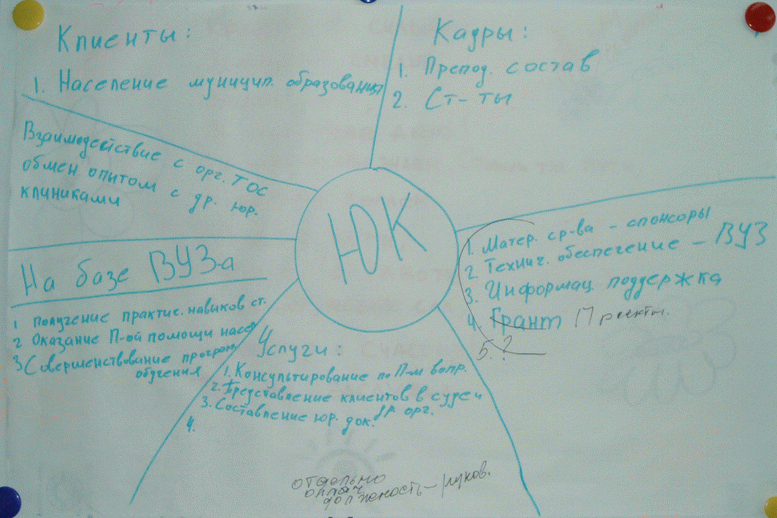 Клиенты:
1. Население муницип. образования
Кадры:
1. Препод. состав
2. Ст-ты
Взаимодействие с орг. ТОС
обмен опытом с др. юр.
клиниками
ЮК
1. Матер. ср-ва - спонсоры
2. Технич. обеспечение - ВУЗ
3. Информац. поддержка
4. Грант Проекты.
5. ?
На базе ВУЗа
1 Получение практич. навыков ст.
2 Оказание П-ой помощи насел
3 Совершенствование програм
обучения
Услуги:
1. Консультирование по П-м вопр.
2. Представление клиентов в суде и
др орг.
3. Составление юр. док.
4.
отдельно
оплач
должность - руков.